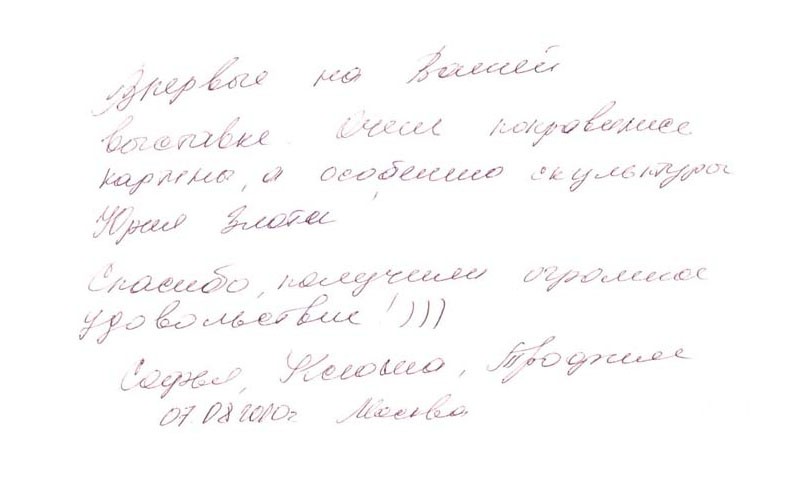 Впервые на Вашей
выставке. Очень понравились
картины, а особенно скульптуры
Юрия Злоти
Спасибо, получили огромное
удовольствие!)))
Софья,
07.08.2010г. Москва